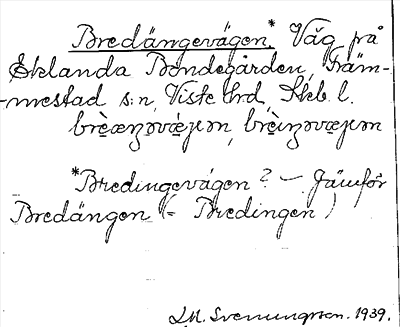 Bredängevägen.* Väg på
Eklanda Bondegården, Främ-
-mestad s:n, Viste hrd, Skb. l.
brèæŋəvæ̀jən, brèiŋəvæ̀jən
*Bredingevägen? – Jämför
Bredängen (= Bredingen)
J.M. Svenungsson. 1939.